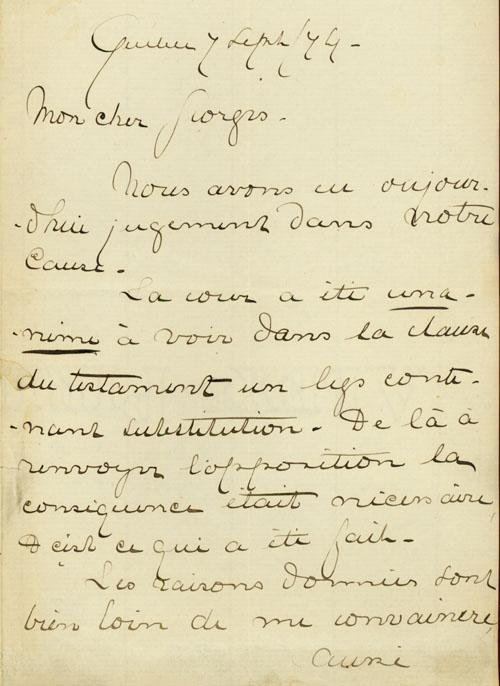 Québec 7 Sept/79 -
Mon cher Georges -
Nous avons eu aujour-
-d'hui jugement dans notre
Cause -
La cour a été una-
-nime à voir dans la clause
du testament un legs conte-
-nant substitution - De là à
renvoyer l'opposition la
conséquence était nécessaire,
& c'est ce qui a été fait -
Les raisons données sont
bien loin de me convaincre,
aussi